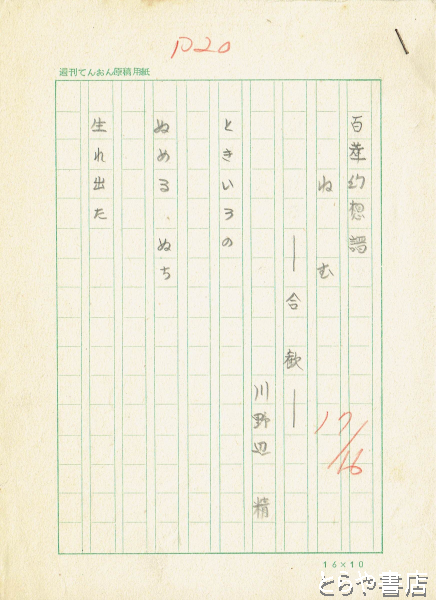 P20
週刊てんおん原稿用紙
百華幻想譜
ねむ
―合歓―
川野辺 精
ときいろの
ぬめる ぬち
生れ出た
17/16
16×10
とらや書店